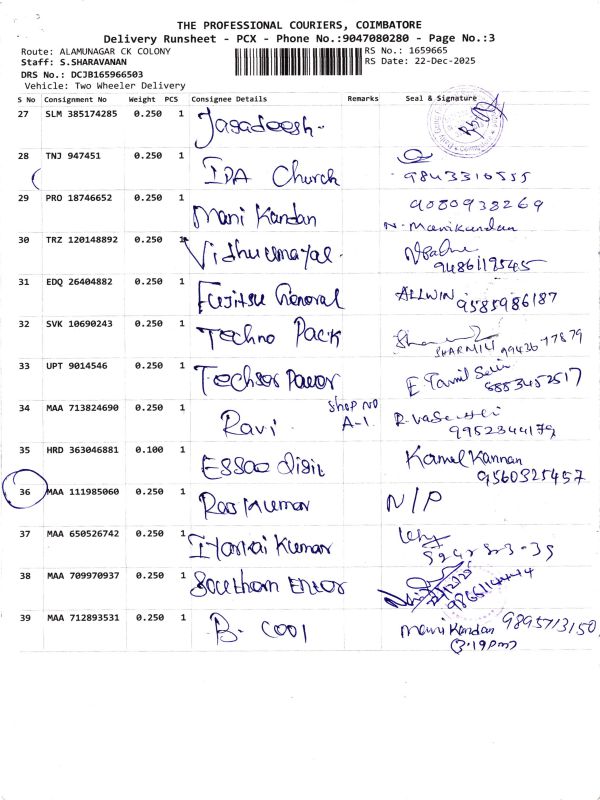 THE PROFESSIONAL COURIERS, COIMBATORE
Delivery Runsheet - PCX - Phone No.:9047080280 - Page No.:3
Route: ALAMUNAGAR CK COLONY RS No.: 1659665
Staff: S.SHARAVANAN RS Date: 22-Dec-2025
DRS No.: DCJB165966503
Vehicle: Two Wheeler Delivery
S No Consignment No Weight PCS Consignee Details Remarks Seal & Signature
27 SLM 385174285 0.250 1 Jagadeesh-
28 TNJ 947451 0.250 1 IPA Church 9843310555
29 PRO 18746652 0.250 1 Mani Kandan 9080938269
N. Manikandan
30 TRZ 120148892 0.250 1 9486119545
31 EDQ 26404882 0.250 1 Fujitsu General ALLWIN 9585986187
32 SVK 10690243 0.250 1 Techno Pack SHARMILI 9943677879
33 UPT 9014546 0.250 1 E Tamil 8883452517
34 MAA 713824690 0.250 1 Ravi Shop NO A-1. 9952344179
35 HRD 363046881 0.100 1 Kamal Kannan
9560325457
36 MAA 111985060 0.250 1 Raj Kumar N/P
37 MAA 650526742 0.250 1 Kumar
38 MAA 709970937 0.250 1 Southern
39 MAA 712893531 0.250 1 B. COOl Mani Kandan 9895713150
(3.19pm)